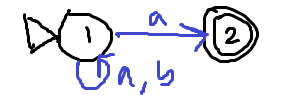 1 a 2
a, b